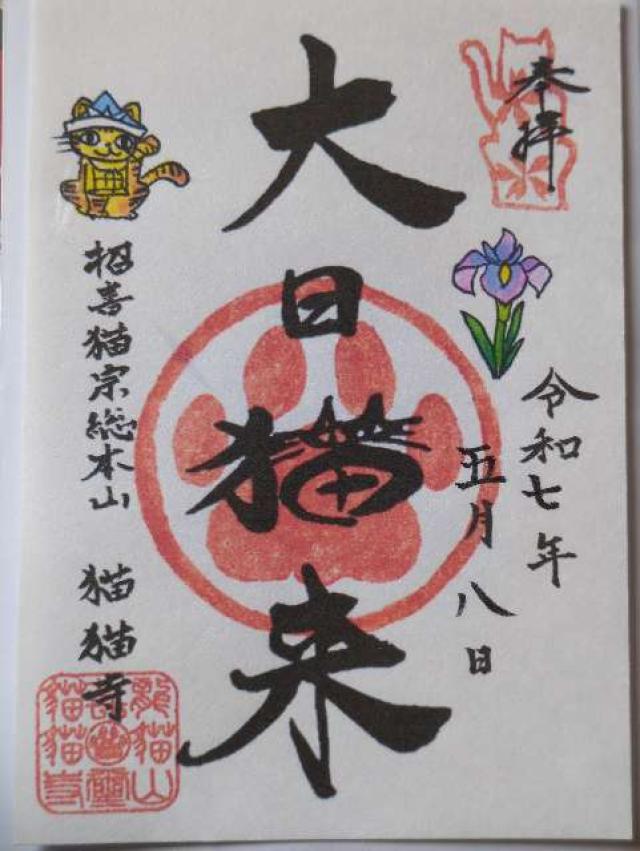 奉拝
令和七年
五月八日
大日猫来
招喜猫宗総本山 猫猫寺
龍猫山
猫猫寺